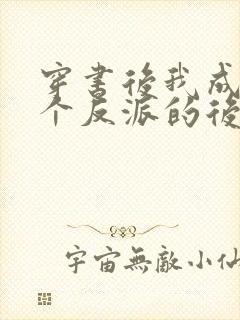 穿書後我成
个反派的後
宇宙無敵小仙